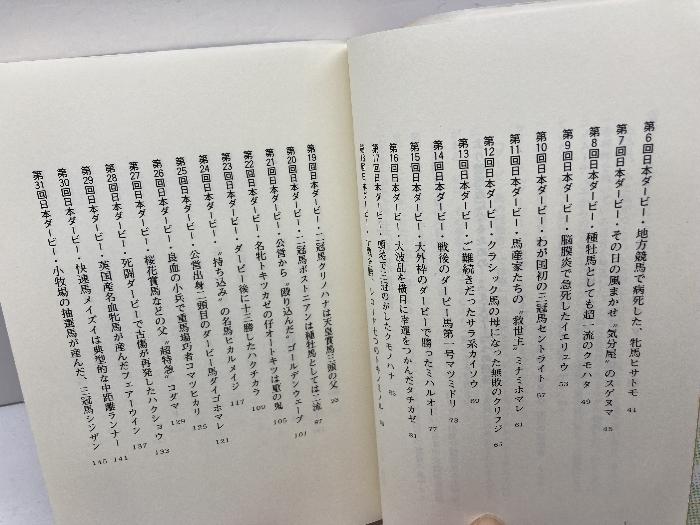 第6回日本ダービー・地方競馬で病死した、牝馬ヒサトモ 41
第7回日本ダービー・その日の風まかせ〝気分屋〟のスゲヌマ 45
第8回日本ダービー・種牡馬としても超一流のクモハタ 49
第9回日本ダービー・脳膜炎で急死したイエリュウ 53
第10回日本ダービー・わが国初の三冠馬セントライト 57
第11回日本ダービー・馬産家たちの〝救世主〟ミナミホマレ 61
第12回日本ダービー・クラシック馬の母になった無敗のクリフジ 65
第13回日本ダービー・ご難続きだったサラ系カイソウ 69
第14回日本ダービー・戦後のダービー馬第一号マツミドリ 73
第15回日本ダービー・大外枠のダービーで勝ったミハルオー 77
第16回日本ダービー・大波乱を横目に幸運をつかんだタチカゼ 81
第17回日本ダービー・
第19回日本ダービー・二冠馬クリノハナは天皇賞馬三頭の父 93
第20回日本ダービー・二冠馬ボストニアンは種牡馬としては二流 97
第21回日本ダービー・公営から〝殴り込んだ〟ゴールデンウェーブ 101
第22回日本ダービー・名牝トキツカゼの仔オートキツは重の鬼 105
第23回日本ダービー・ダービー後に十三勝したハクチカラ 109
第24回日本ダービー・〝持ち込み〟の名馬ヒカルメイジ 117
第25回日本ダービー・公営出身二頭目のダービー馬ダイゴホマレ 121
第26回日本ダービー・良血の小兵で重馬場巧者コマツヒカリ 125
第27回日本ダービー・桜花賞馬などの父〝超特急〟コダマ 129
第28回日本ダービー・死闘ダービーで古傷が再発したハクショウ 133
第29回日本ダービー・英国産名血牝馬が産んだフェアーウイン 137
第30回日本ダービー・快速馬メイズイは典型的な中距離ランナー 141
第31回日本ダービー・小牧場の抽選馬が産んだ、三冠馬シンザン 145